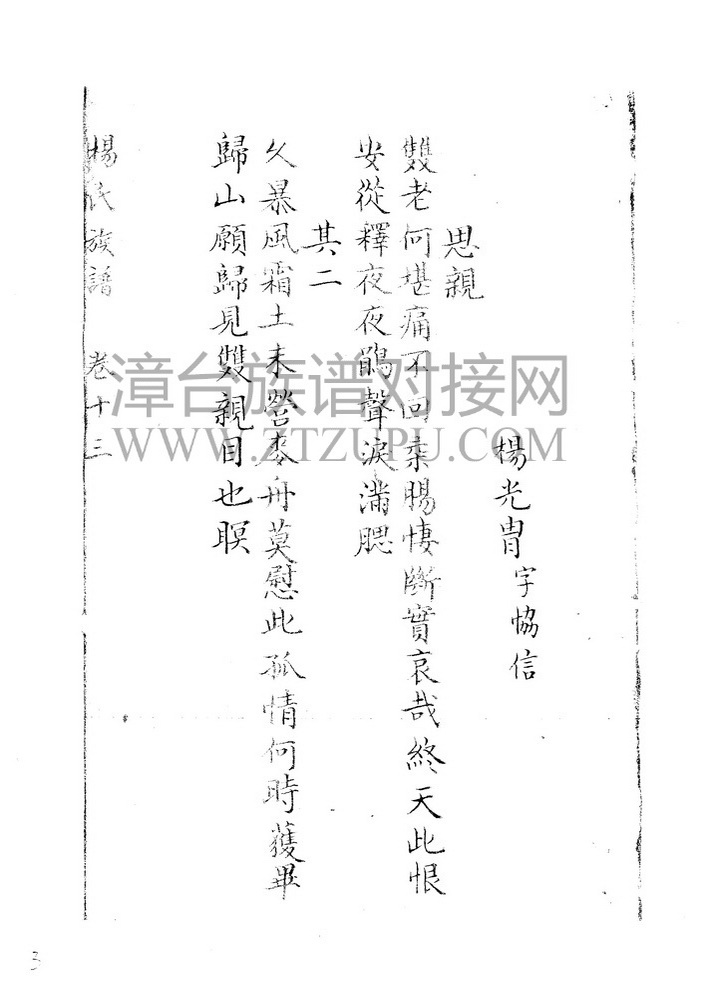 楊光胄字恊信
思親
雙老何堪痛不回柔腸悽斷實哀哉終天此恨
安從釋夜夜鵑聲淚滿腮
其二
久暴風霜土未營麥舟莫慰此孤情何時獲畢
歸山願歸見雙親目也瞑
楊氏族譜 卷十三
漳台族谱对接网
WWW.ZTZUPU.COM
3